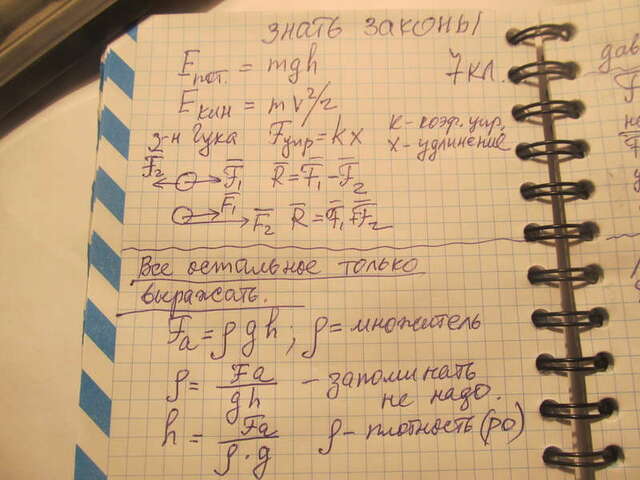 знать законы
E пот. = mgh 7 кл.
E кин = mv²/2
з-н Гука F упр = kx к - коэф. упр,
х - удлинение
F̅₂ F̅₁ R̅ = F̅₁ - F̅₂
F̅₁ F̅₂ R̅ = F̅₁ + F̅₂
Все остальное только
выражать.
Fa = ρgh; ρ = множитель
ρ = Fa/gh - запоминать
не надо.
h = Fa/ρ·g ρ - плотность (ро)
дав